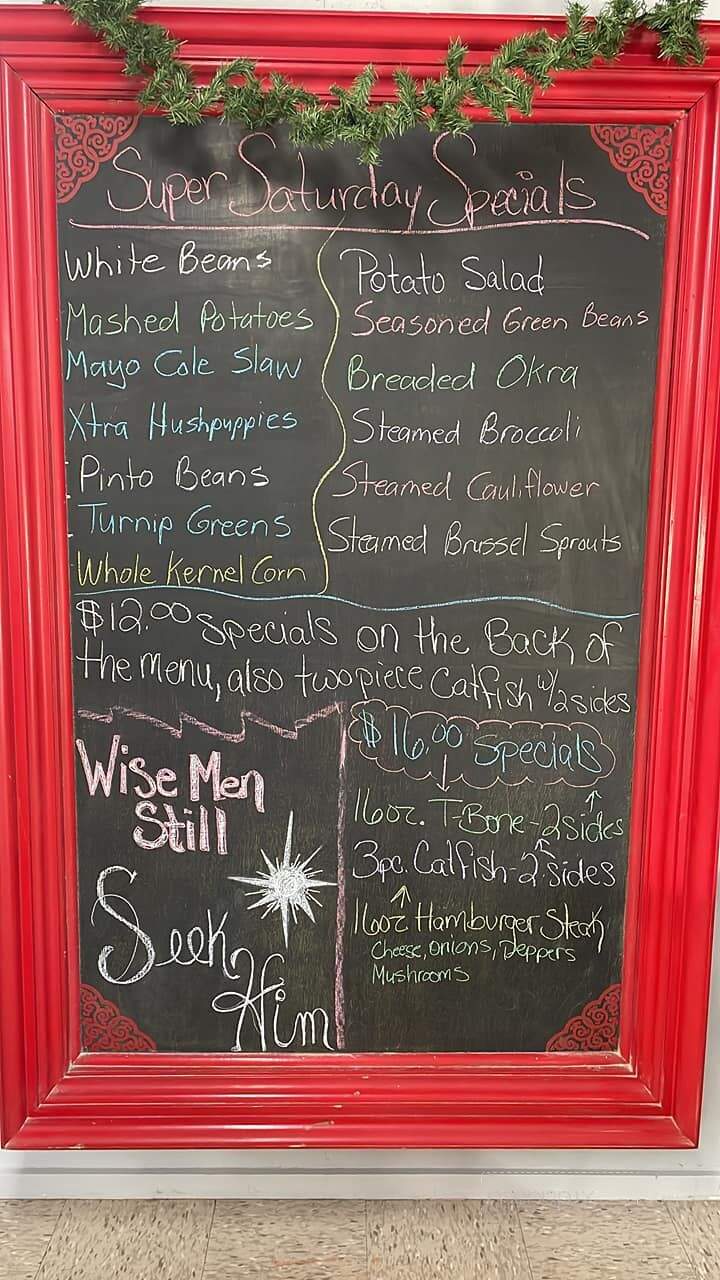 Super Saturday Specials
White Beans
Mashed Potatoes
Mayo Cole Slaw
Xtra Hushpuppies
Pinto Beans
Turnip Greens
Whole Kernel Corn
Potato Salad
Seasoned Green Beans
Breaded Okra
Steamed Broccoli
Steamed Cauliflower
Steamed Brussel Sprouts
$12.00 Specials on the Back of
the menu, also two piece Catfish w/2 sides
Wise Men
Still
Seek
Him
$16.00 Specials
16oz. T-Bone-2sides
3pc. Catfish-2 sides
16oz Hamburger Steak
Cheese, Onions, Peppers
Mushrooms